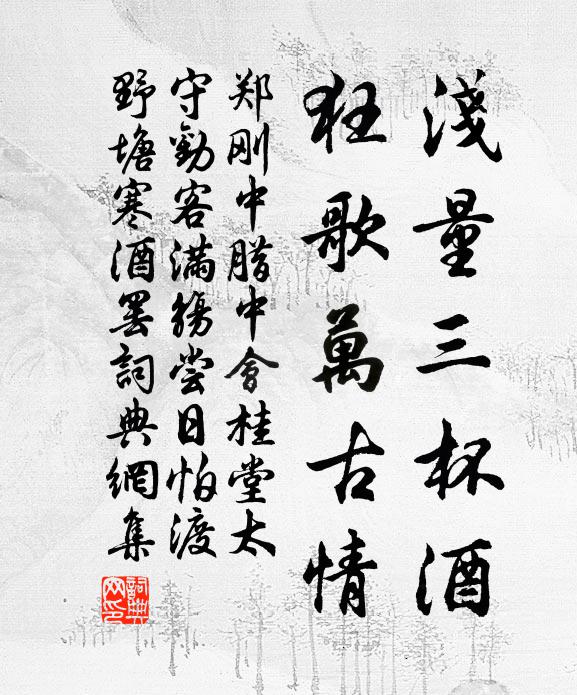 淺量三杯酒
狂歌萬古情
郑刚中腊中會桂堂太
守勸客滿觴嘗日怕渡
野塘寒酒罢詞典網集